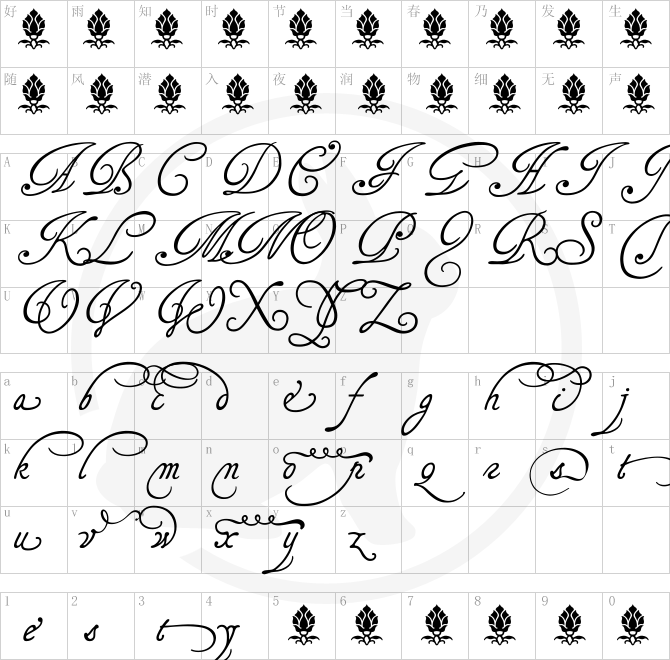 好 雨 知 时 节 当 春 乃 发 生
随 风 潜 入 夜 润 物 细 无 声
A B C D E F G H I J
A B C D E F G H I J
K L M N O P Q R S T
K L M N O P Q R S T
U V W X Y Z
U V W X Y Z
a b c d e f g h i j
a b c d e f g h i j
k l m n o p q r s t
k l m n o p q r s t
u v w x y z
u v w x y z
1 2 3 4 5 6 7 8 9 0
e s t y